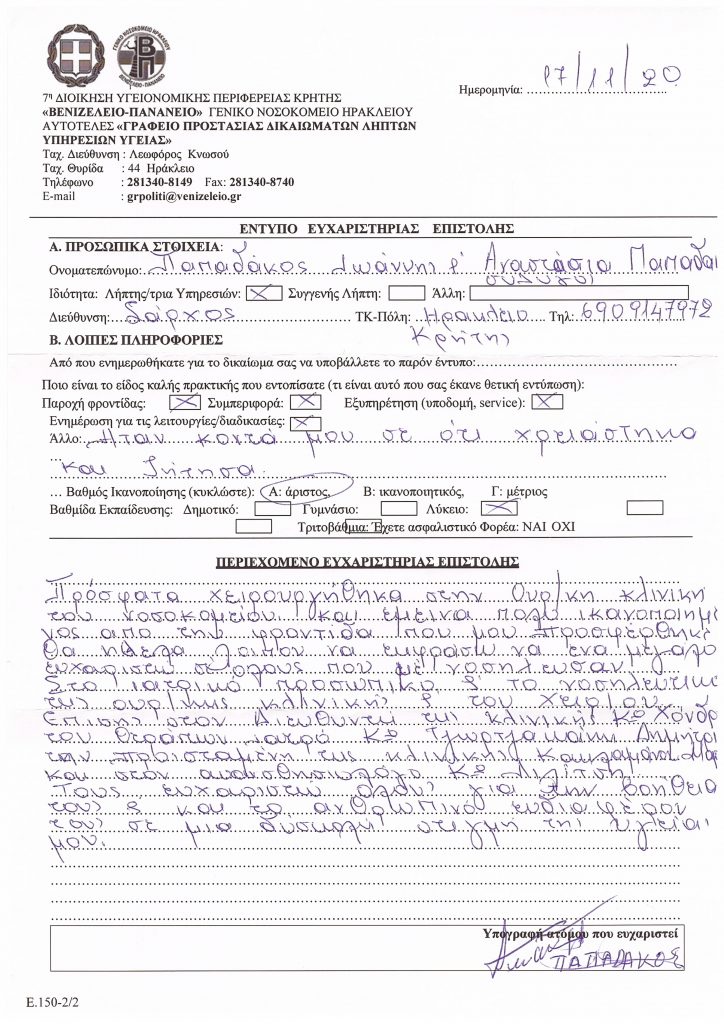 Ημερομηνία: 17/11/20
7η ΔΙΟΙΚΗΣΗ ΥΓΕΙΟΝΟΜΙΚΗΣ ΠΕΡΙΦΕΡΕΙΑΣ ΚΡΗΤΗΣ
«ΒΕΝΙΖΕΛΕΙΟ-ΠΑΝΑΝΕΙΟ» ΓΕΝΙΚΟ ΝΟΣΟΚΟΜΕΙΟ ΗΡΑΚΛΕΙΟΥ
ΑΥΤΟΤΕΛΕΣ «ΓΡΑΦΕΙΟ ΠΡΟΣΤΑΣΙΑΣ ΔΙΚΑΙΩΜΑΤΩΝ ΛΗΠΤΩΝ
ΥΠΗΡΕΣΙΩΝ ΥΓΕΙΑΣ»
Ταχ. Διεύθυνση : Λεωφόρος Κνωσού
Ταχ. Θυρίδα : 44 Ηράκλειο
Τηλέφωνο : 281340-8149 Fax: 281340-8740
E-mail : grpoliti@venizeleio.gr
ΕΝΤΥΠΟ ΕΥΧΑΡΙΣΤΗΡΙΑΣ ΕΠΙΣΤΟΛΗΣ
Α. ΠΡΟΣΩΠΙΚΑ ΣΤΟΙΧΕΙΑ:
Ονοματεπώνυμο: Παπαδάκος Ιωάννης Αναστάσια Παπαδα
σύζυγος
Ιδιότητα: Λήπτης/τρια Υπηρεσιών: Συγγενής Λήπτη: Άλλη:
Διεύθυνση: Σάρχος ΤΚ-Πόλη: Ηρακλειο Τηλ: 6909147972
Κρήτης
Β. ΛΟΙΠΕΣ ΠΛΗΡΟΦΟΡΙΕΣ
Από που ενημερωθήκατε για το δικαίωμα σας να υποβάλλετε το παρόν έντυπο:
Ποιο είναι το είδος καλής πρακτικής που εντοπίσατε (τι είναι αυτό που σας έκανε θετική εντύπωση):
Παροχή φροντίδας: Συμπεριφορά: Εξυπηρέτηση (υποδομή, service):
Ενημέρωση για τις λειτουργίες/διαδικασίες:
Άλλο: Ηταν κοντά μου σε ότι χρειάστηκα
και ζήτησα.
… Βαθμός Ικανοποίησης (κυκλώστε): Α: άριστος, Β: ικανοποιητικός, Γ: μέτριος
Βαθμίδα Εκπαίδευσης: Δημοτικό: Γυμνάσιο: Λύκειο:
Τριτοβάθμια: Έχετε ασφαλιστικό Φορέα: ΝΑΙ ΟΧΙ
ΠΕΡΙΕΧΟΜΕΝΟ ΕΥΧΑΡΙΣΤΗΡΙΑΣ ΕΠΙΣΤΟΛΗΣ
Πρόσφατα χειρουργήθηκα στην Ουρ/κη κλινική
του νοσοκομείου και εμεινα πολυ ικανοποιημε
νος απο την φροντίδα που μου προσφερθηκε
θα ηθελα λοιπον να εκφρασω να ενα μεγαλο
ευχαριστω σε ολους που με νοσηλευσαν
Στο ιατρικο προσωπικο το νοσηλευτικο
της κλινικής του Χειρ/ου.
Επισης στον Διευθυντη της κλινικης Κο
τον θεράποντ ιατρό Κο Δημήτρι
την προισταμένη της κλινικης
και στον αναισθησιολόγο Κο
Τους ευχαριστω ολους για την βοηθεια
τους και το ανθρωπινο ενδιαφερον
τους σε μια δυσκολη στιγμή της υγείας
μου.
Υπογραφή ατόμου που ευχαριστεί
ΠΑΠΑΔΑΚΟΣ
Ε.150-2/2